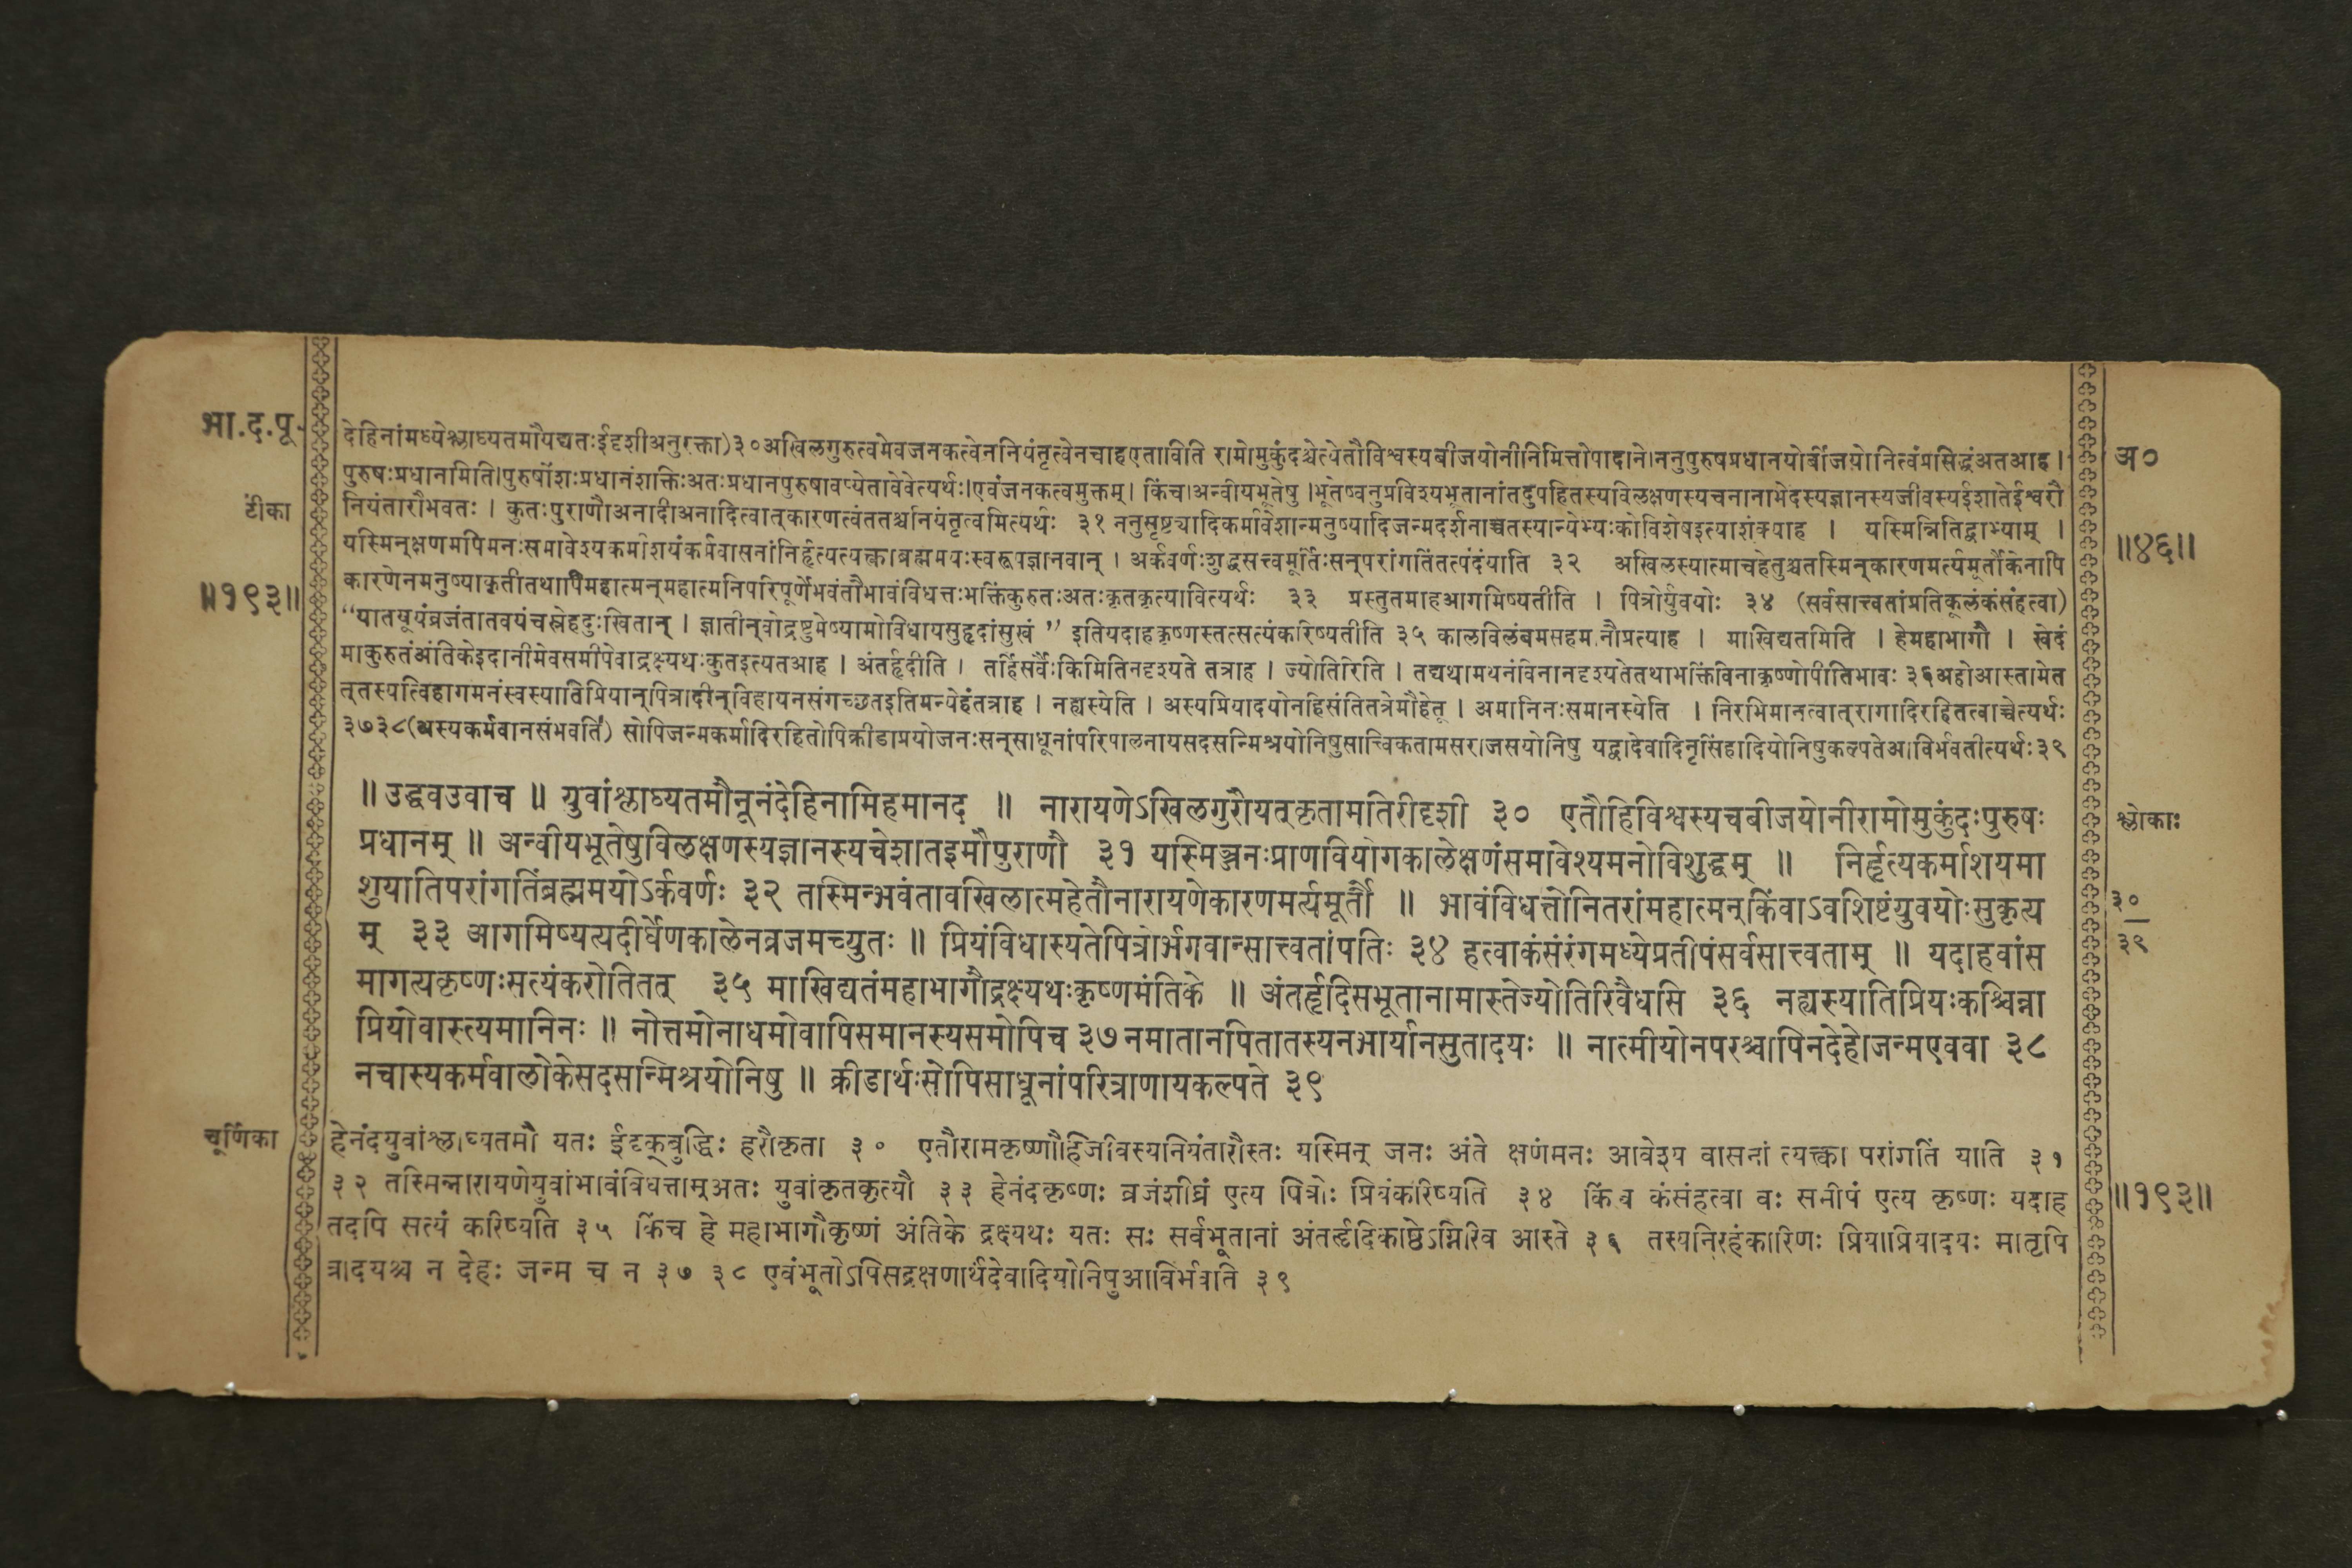 भा.द.पू.
टीका
॥१९३॥
अ०
॥४६॥
देहिनांमध्येश्लाघ्यतमौयद्यतःईदृशीअनुरक्ता)३०अखिलगुरुत्वमेवजनकत्वेननियंतृत्वेनचाहएताविति रामोमुकुंदश्चेत्येतौविश्वस्यबीजयोनीनिमित्तोपादाने।ननुपुरुषप्रधानयोर्बीजयोनित्वंप्रसिद्धंअतआह।
पुरुषःप्रधानमिति।पुरुषोंशःप्रधानंशक्तिःअतःप्रधानपुरुषावप्येतावेवेत्यर्थः।एवंजनकत्वमुक्तम्। किंच।अन्वीयभूतेषु।भूतेष्वनुप्रविश्यभूतानांतदुपहितस्यविलक्षणस्यचनानाभेदस्यज्ञानस्यजीवस्यईशातेईश्वरौ
नियंतारौभवतः । कुतःपुराणौअनादीअनादित्वात्कारणत्वंततश्चनियंतृत्वमित्यर्थः ३१ ननुसृष्ट्यादिकर्मावेशान्मनुष्यादिजन्मदर्शनाच्चतस्यान्येभ्यःकोविशेषइत्याशंक्याह । यस्मिन्नितिद्वाभ्याम् ।
यस्मिन्क्षणमपिमनःसमावेश्यकर्माशयंकर्मवासनांनिर्हृत्यत्यक्त्वाब्रह्ममयःस्वरूपज्ञानवान् । अर्कवर्णःशुद्धसत्त्वमूर्तिःसन्परांगतिंतत्पदंयाति ३२ अखिलस्यात्माचहेतुश्चतस्मिन्कारणमर्त्यमूर्तौकेनापि
कारणेनमनुष्याकृतीतथापिमहात्मन्महात्मनिपरिपूर्णेभवंतौभावंविधत्तःभक्तिंकुरुतःअतःकृतकृत्यावित्यर्थः ३३ प्रस्तुतमाहआगमिष्यतीति । पित्रोर्युवयोः ३४ (सर्वसात्त्वतांप्रतिकूलंकंसंहत्वा)
“यातयूयंव्रजंतातवयंचस्नेहदुःखितान् । ज्ञातीन्वोद्रष्टुमेष्यामोविधायसुहृदांसुखं ” इतियदाहकृष्णस्तत्सत्यंकरिष्यतीति ३५ कालविलंबमसहमानौप्रत्याह । माखिद्यतमिति । हेमहाभागौ । खेदं
माकुरुतंअंतिकेइदानीमेवसमीपेवाद्रक्ष्यथःकुतइत्यतआह । अंतर्हृदीति । तर्हिसर्वैःकिमितिनदृश्यते तत्राह । ज्योतिरिति । तद्यथामथनंविनानदृश्यतेतथाभक्तिंविनाकृष्णोपीतिभावः ३६अहोआस्तामेत
त्तस्यत्विहागमनंस्वस्यातिप्रियान्पित्रादीन्विहायनसंगच्छतइतिमन्येहंतत्राह । नह्यस्येति । अस्यप्रियादयोनहिसंतितत्रेमौहेतू । अमानिनःसमानस्येति । निरभिमानत्वात्रागादिरहितत्वाच्चेत्यर्थः
३७३८(अस्यकर्मवानसंभवति) सोपिजन्मकर्मादिरहितोपिक्रीडाप्रयोजनःसन्साधूनांपरिपालनायसदसन्मिश्रयोनिषुसात्त्विकतामसराजसयोनिषु यद्वादेवादिनृसिंहादियोनिषुकल्पतेआविर्भवतीत्यर्थः३९
॥ उद्धवउवाच ॥ युवांश्लाघ्यतमौनूनंदेहिनामिहमानद ॥ नारायणेऽखिलगुरौयत्कृतामतिरीदृशी ३० एतौहिविश्वस्यचबीजयोनीरामोमुकुंदःपुरुषः
प्रधानम् ॥ अन्वीयभूतेषुविलक्षणस्यज्ञानस्यचेशातइमौपुराणौ ३१ यस्मिञ्जनःप्राणवियोगकालेक्षणंसमावेश्यमनोविशुद्धम् ॥ निर्हृत्यकर्माशयमा
शुयातिपरांगतिंब्रह्ममयोऽर्कवर्णः ३२ तस्मिन्भवंतावखिलात्महेतौनारायणेकारणमर्त्यमूर्तौ ॥ भावंविधत्तोनितरांमहात्मन्किंवाऽवशिष्टंयुवयोःसुकृत्य
म् ३३ आगमिष्यत्यदीर्घेणकालेनव्रजमच्युतः ॥ प्रियंविधास्यतेपित्रोर्भगवान्सात्त्वतांपतिः ३४ हत्वाकंसंरंगमध्येप्रतीपंसर्वसात्त्वताम् ॥ यदाहवांस
मागत्यकृष्णःसत्यंकरोतितत् ३५ माखिद्यतंमहाभागौद्रक्ष्यथःकृष्णमंतिके ॥ अंतर्हृदिसभूतानामास्तेज्योतिरिवैधसि ३६ नह्यस्यातिप्रियःकश्चिन्ना
प्रियोवास्त्यमानिनः ॥ नोत्तमोनाधमोवापिसमानस्यसमोपिच ३७ नमातानपितातस्यनभार्यानसुतादयः ॥ नात्मीयोनपरश्चापिनदेहोजन्मएववा ३८
नचास्यकर्मवालोकेसदसन्मिश्रयोनिषु ॥ क्रीडार्थःसोपिसाधूनांपरित्राणायकल्पते ३९
श्लोकाः
३०
३९
चूर्णिका
हेनंदयुवांश्लाघ्यतमौ यतः ईदृक्बुद्धिः हरौकृता ३० एतौरामकृष्णौहिजीवस्यनियंतारौस्तः यस्मिन् जनः अंते क्षणंमनः आवेश्य वासनां त्यक्त्वा परांगतिं याति ३१
३२ तस्मिन्नारायणेयुवांभावंविधत्ताम्अतः युवांकृतकृत्यौ ३३ हेनंदकृष्णः व्रजंशीघ्रं एत्य पित्रोः प्रियंकरिष्यति ३४ किंच कंसंहत्वा वः समीपं एत्य कृष्णः यदाह
तदपि सत्यं करिष्यति ३५ किंच हे महाभागौकृष्णं अंतिके द्रक्ष्यथः यतः सः सर्वभूतानां अंतर्हृदिकाष्ठेऽग्निरिव आस्ते ३६ तस्यनिरहंकारिणः प्रियाप्रियादयः मातृपि
त्रादयश्च न देहः जन्म च न ३७ ३८ एवंभूतोऽपिसद्रक्षणार्थंदेवादियोनिषुआविर्भवति ३९
॥१९३॥